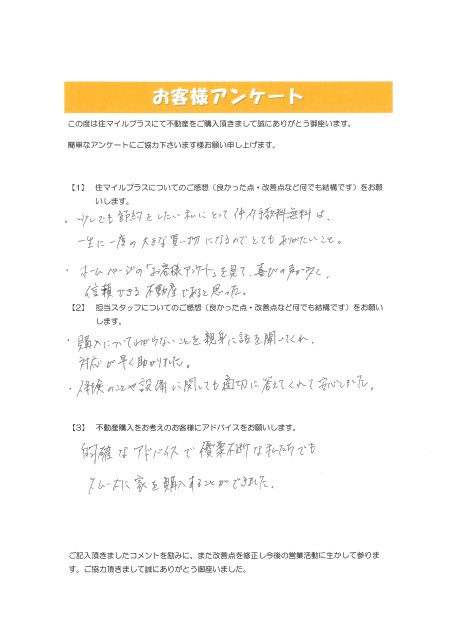 お客様アンケート
この度は住マイルプラスにて不動産をご購入頂きまして誠にありがとう御座います。
簡単なアンケートにご協力下さいます様お願い申し上げます。
【1】 住マイルプラスについてのご感想（良かった点・改善点など何でも結構です）をお願
いします。
・少しでも節約をしたい私にとって仲介手数料無料は、
一生に一度の大きな買い物になるのでとてもありがたいこと。
・ホームページの「お客様アンケート」を見て、喜びの声が多く、
信頼できる不動産であると思った。
【2】 担当スタッフについてのご感想（良かった点・改善点など何でも結構です）をお願い
します。
・購入についてわからないことを親身に話を聞いてくれ、
対応が早く助かりました。
・保険のことや設備に関しても適切に答えてくれて安心しました。
【3】 不動産購入をお考えのお客様にアドバイスをお願いします。
的確なアドバイスで優柔不断な私たちでも
スムーズに家を購入することができました。
ご記入頂きましたコメントを励みに、また改善点を修正し今後の営業活動に生かして参りま
す。ご協力頂きまして誠にありがとう御座いました。